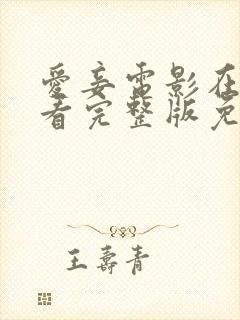 愛妾電影在
看完整版免
王壽青